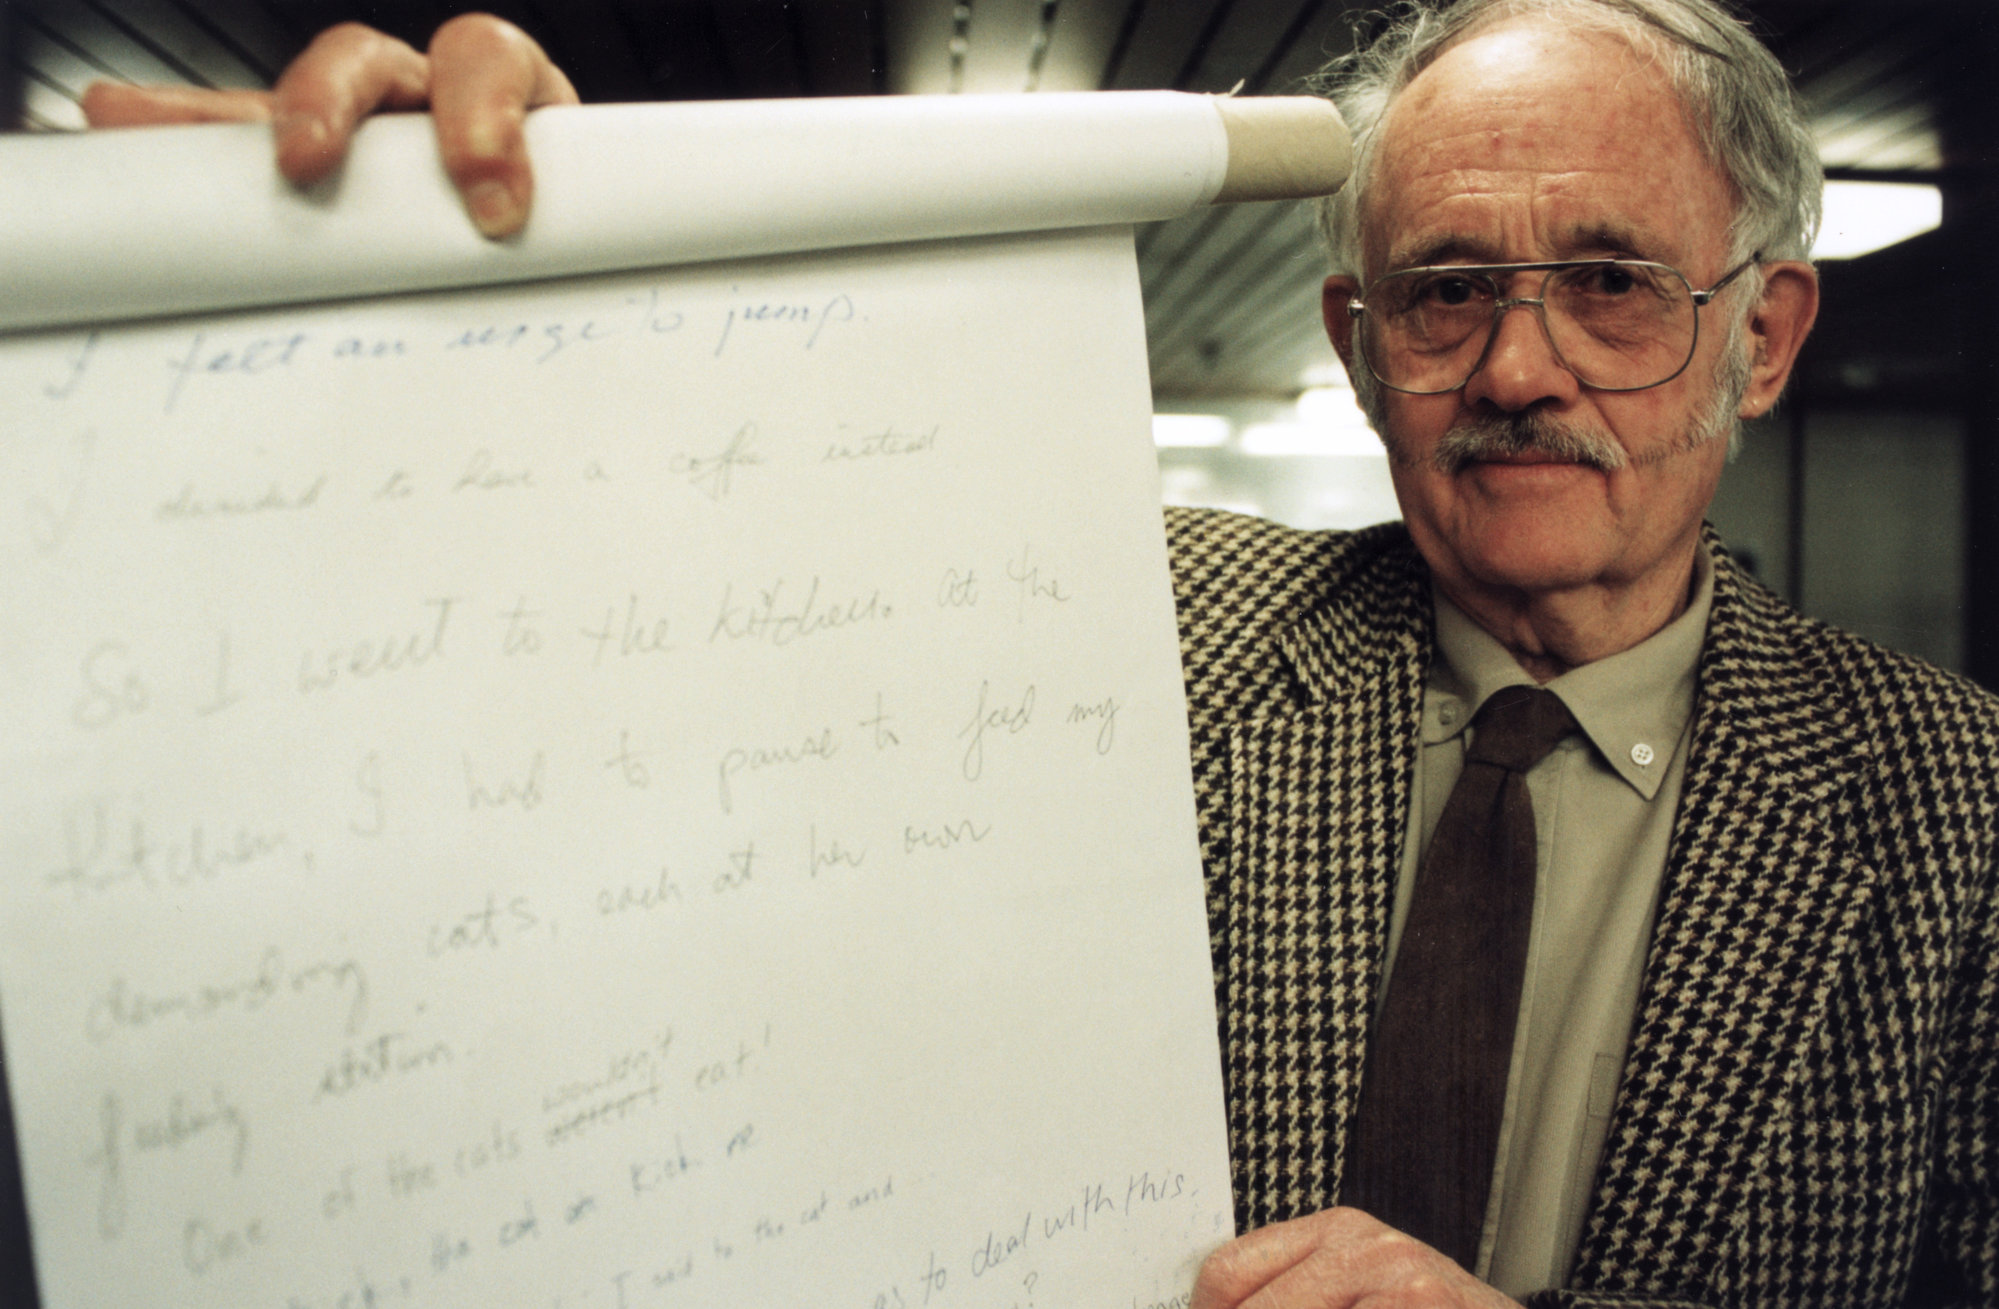 I felt an urge to jump.
I decided to have a coffee instead
So I went to the kitchen. At the
kitchen, I had to pause to feed my
demanding cats, each at her own
feeding station.
One of the cats wouldn't eat!
the cat an kick.
I said to the cat and
to deal with this.
?